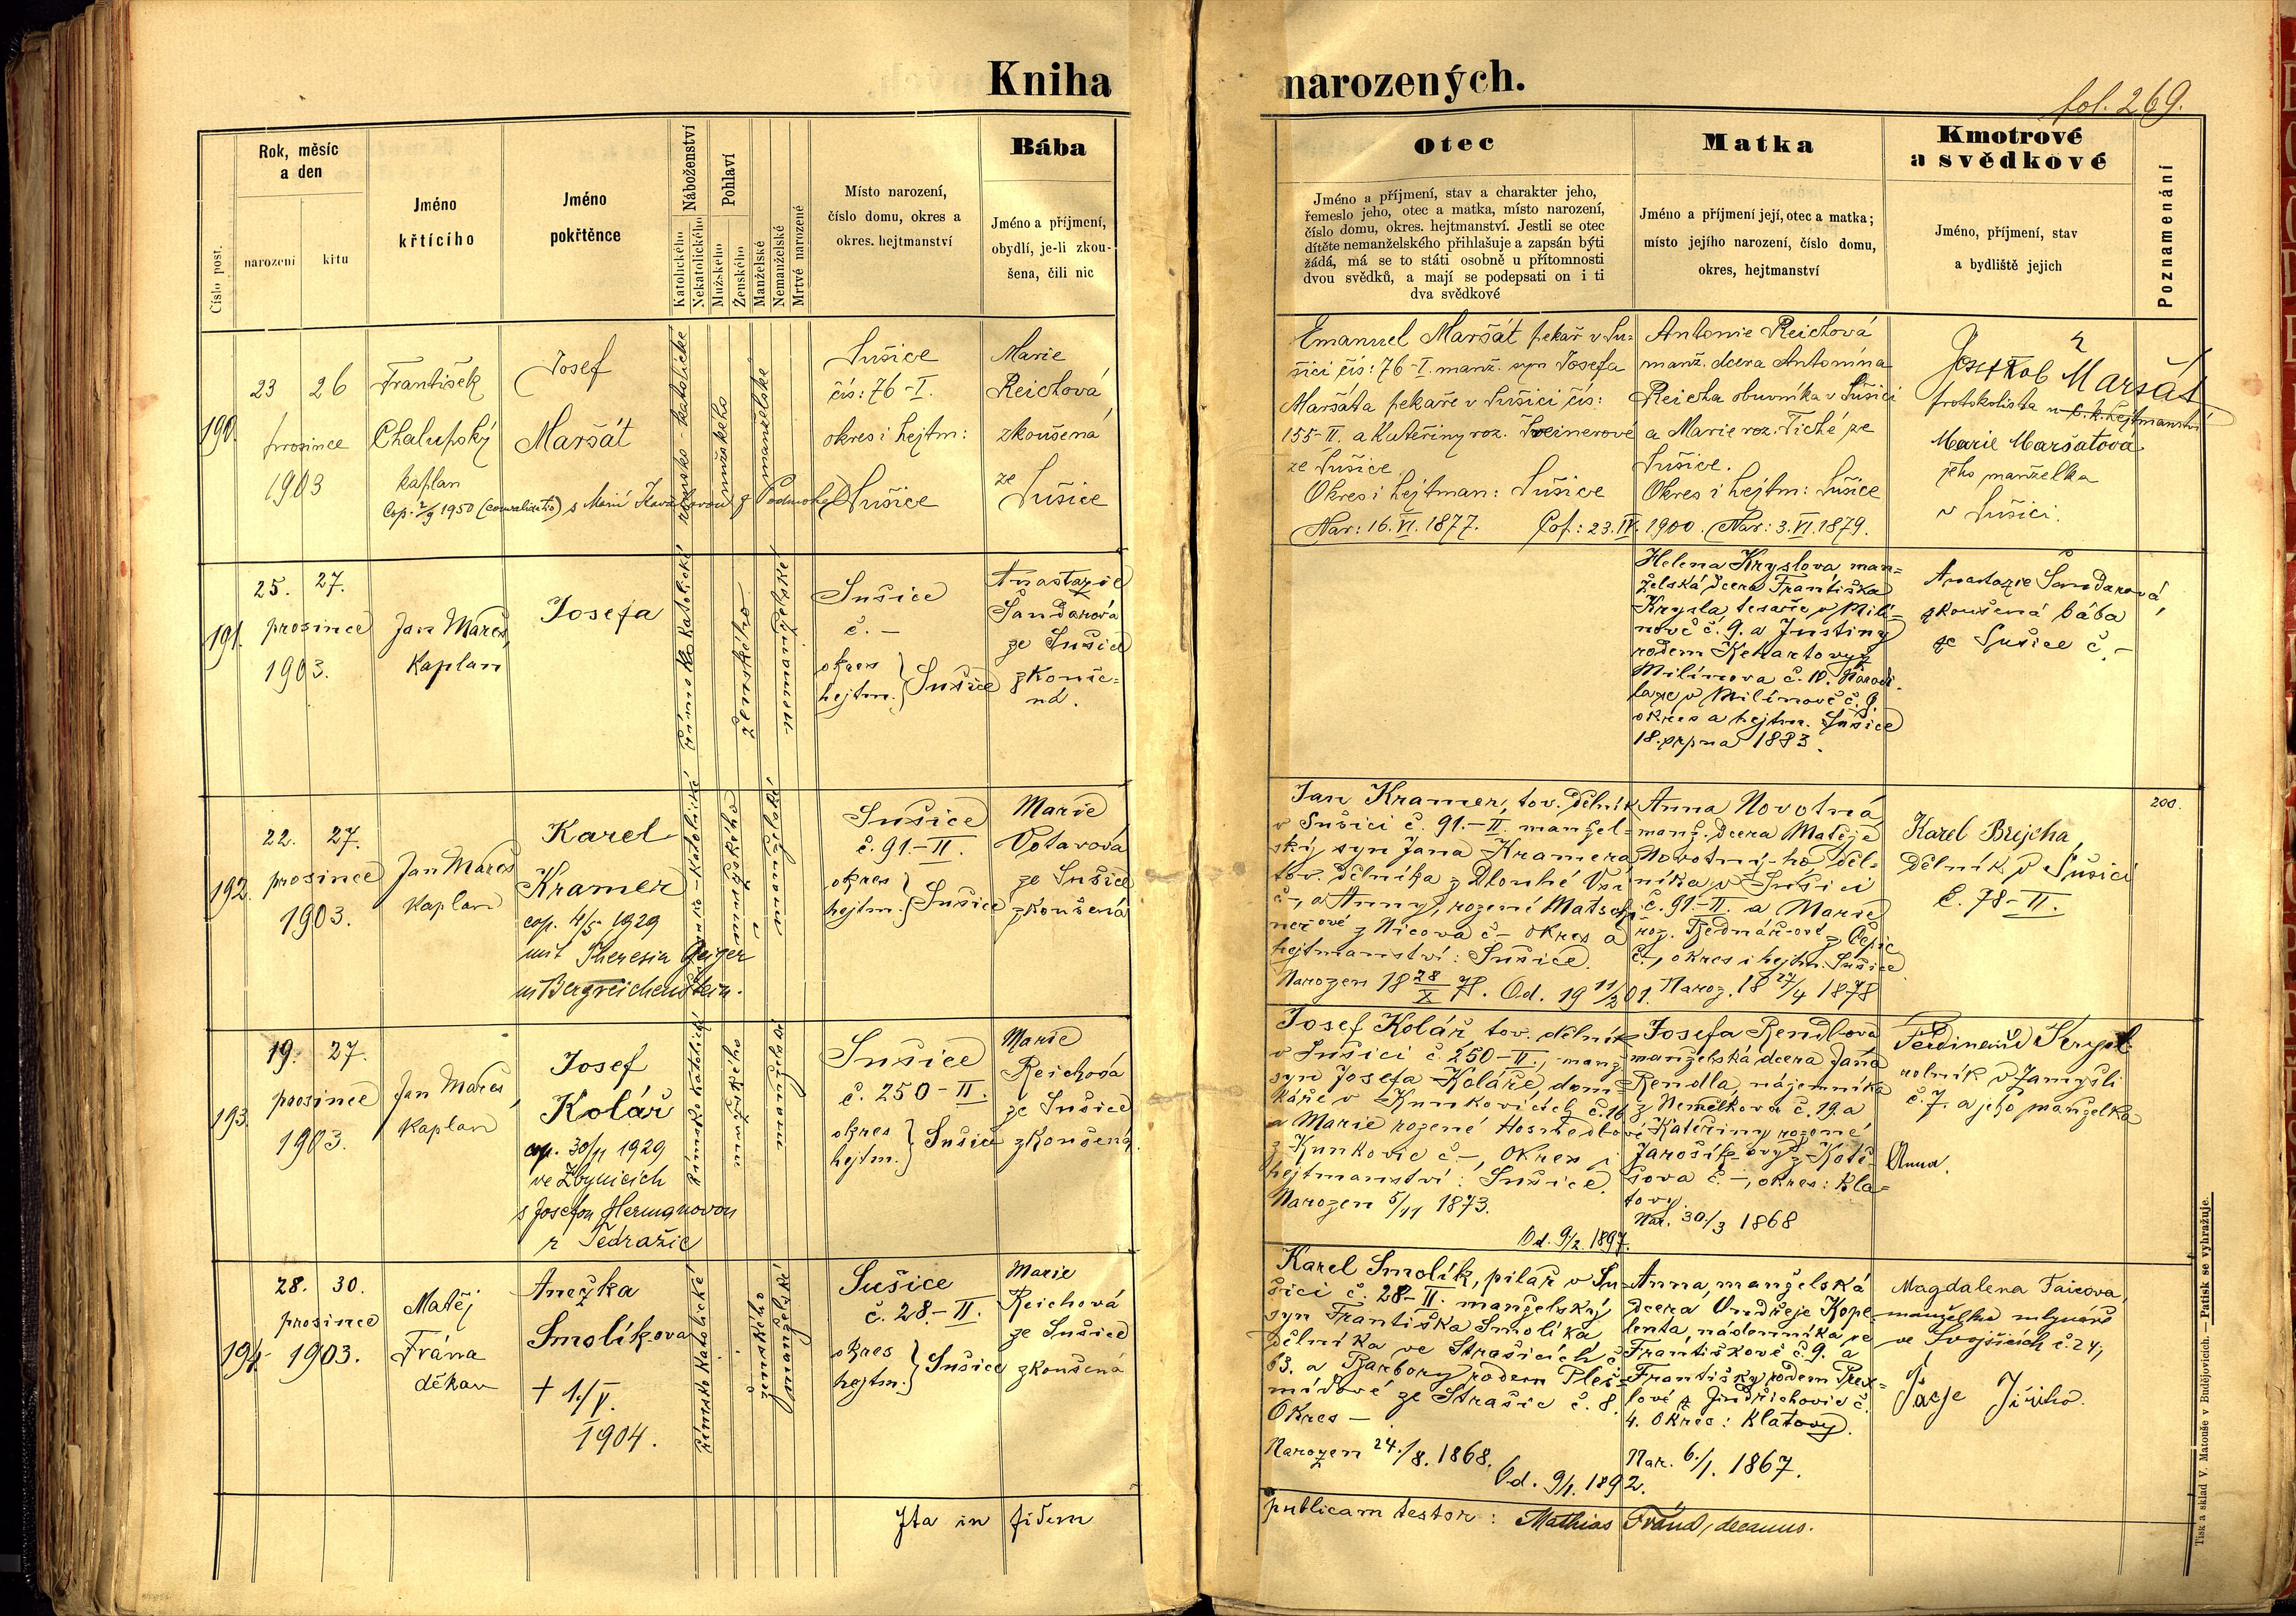 Kniha narozených.
fol. 269.
Číslo post.
Rok, měsíc
a den
narození
křtu
Jméno
křtícího
Jméno
pokřtěnce
Náboženství
Katolického
Nekatolického
Pohlaví
Mužského
Ženského
Manželské
Nemanželské
Mrtvě narozené
Místo narození,
číslo domu, okres a
okres. hejtmanství
Bába
Jméno a příjmení,
obydlí, je-li zkou-
šena, čili nic
Otec
Jméno a příjmení, stav a charakter jeho,
řemeslo jeho, otec a matka, místo narození,
číslo domu, okres. hejtmanství. Jestli se otec
dítěte nemanželského přihlašuje a zapsán býti
žádá, má se to státi osobně u přítomnosti
dvou svědků, a mají se podepsati on i ti
dva svědkové
Matka
Jméno a příjmení její, otec a matka;
místo jejího narození, číslo domu,
okres, hejtmanství
Kmotrové
a svědkové
Jméno, příjmení, stav
a bydliště jejich
Poznamenání
190.
23 26
prosince
1903
František
Chalupský
kaplan
Josef
Maršát
Cop. 2/9 1950 (convalidatio) s Marií
římsko-katolické
mužského
manželské
Sušice
čís: 76-I.
okres i hejtm:
Sušice
Marie
Reichová
zkoušená
ze
Sušice
Emanuel Maršát pekař v Su-
šici čís: 76-I. manž. syn Josefa
Maršáta pekaře v Sušici čís:
155-II. a Kateřiny roz.
ze Sušice.
Okres i hejtman: Sušice
Nar: 16.VI.1877. Cop: 23.IV.1900.
Antonie Reichová
manž. dcera Antonína
Reicha obuvníka v Sušici
a Marie roz. Tiché ze
Sušice.
Okres i hejtm: Sušice
Nar: 3.VI.1879.
Maršát
protokolista u c. k. hejtmanství
Marie Maršatová
jeho manželka
v Sušici.
191.
25. 27.
prosince
1903.
Jan Mareš,
kaplan
Josefa
římsko katolické
ženského
nemanželské
Sušice
č. –
okres
hejtm. } Sušice
Anastazie
Šandarová
ze Sušice
zkouše-
ná.
Helena Kryslova man-
želská dcera Františka
Krysla tesaře v Milí-
nově č. 9. a Justiny
rodem
Milínova č. 10. Narodi-
la se v Milínově č. 9.
okres a hejtm. Sušice
18. srpna 1883.
Anastazie Šandarová,
zkoušená bába
ze Sušice č. –
192.
22. 27.
prosince
1903.
Jan Mareš
kaplan
Karel
Kramer
cop. 4/5 1929
mit Theresia Geiger
in Bergreichenstein.
římsko-katolické
mužského
manželské
Sušice
č. 91.-II.
okres
hejtm. } Sušice
Marie
Votavová
ze Sušice
zkoušená
Jan Kramer, tov. dělník
v Sušici č. 91.-II. manžel-
ský syn Jana Kramera
tov. dělníka z Dlouhé Vsi
č –, a Anny, rozené
z Nicova č – okres a
hejtmanství: Sušice.
Narozen 18 28/X 78. Od. 19 11/2 01.
Anna Novotná
manž. dcera Matěje
Novotný-ho děl-
níka v Sušici
č. 91.-II. a Marie
roz. Bednář-ové z Čepic
č. –, okres i hejtm. Sušice
Naroz. 18 27/4 1878
Karel Brejcha,
dělník v Sušici
č. 78-II.
200.
193.
19. 27.
prosince
1903.
Jan Mareš,
kaplan
Josef
Kolář
cop. 30/11 1929
ve Zbynicích
s Josefou Heřmanovou
z Tedražic
římsko katolické
mužského
manželské
Sušice
č. 250-II.
okres
hejtm. } Sušice
Marie
Reichová
ze Sušice
zkoušená
Josef Kolář, tov. dělník
v Sušici č. 250-II., manž.
syn Josefa Koláře, dom-
káře v Kunkovicích č. 16
a Marie rozené
z Kunkovic č –, okres i
hejtmanství: Sušice.
Narozen 5/11 1873.
Od. 9/2. 1897.
Josefa Rendlova
manželská dcera Jana
Rendla, nájemníka
z Nemělkova č. 19. a
Kateřiny rozené
Jarošík-ovy z Kotě-
šova č. –, okres: Kla-
tovy.
Nar. 30./3 1868
Ferdinand
rolník v Zamyšli
č. 7. a jeho manželka
Anna.
194.
28. 30.
prosince
1903.
Matěj
Frána
děkan
Anežka
Smolíkova
+ 1./V.
1904.
římsko katolické
ženského
manželské
Sušice
č. 28.-II.
okres
hejtm. } Sušice
Marie
Reichová
ze Sušice
zkoušená
Karel Smolík, pilař v Su-
šici č. 28-II. manželský
syn Františka Smolíka,
dělníka ve Strašicích č.
63. a Barbory rodem
ze Strašic č. 8.
Okres –.
Narozen 24./8. 1868.
Od. 9/1. 1892.
Anna, manželská
dcera Ondřeje Kope-
lenta, nádenníka ve
Františkově č. 9. a
Františky rodem
z Jindřichovic č.
4. okres: Klatovy.
Nar. 6./1. 1867.
Magdalena
manželka mlynáře
ve Svojšicích č. 24;
Ita in fidem
publicam testor: Mathias Frána, decanus.
Tisk a sklad V. Matouše v Budějovicích. — Patisk se vyhražuje.